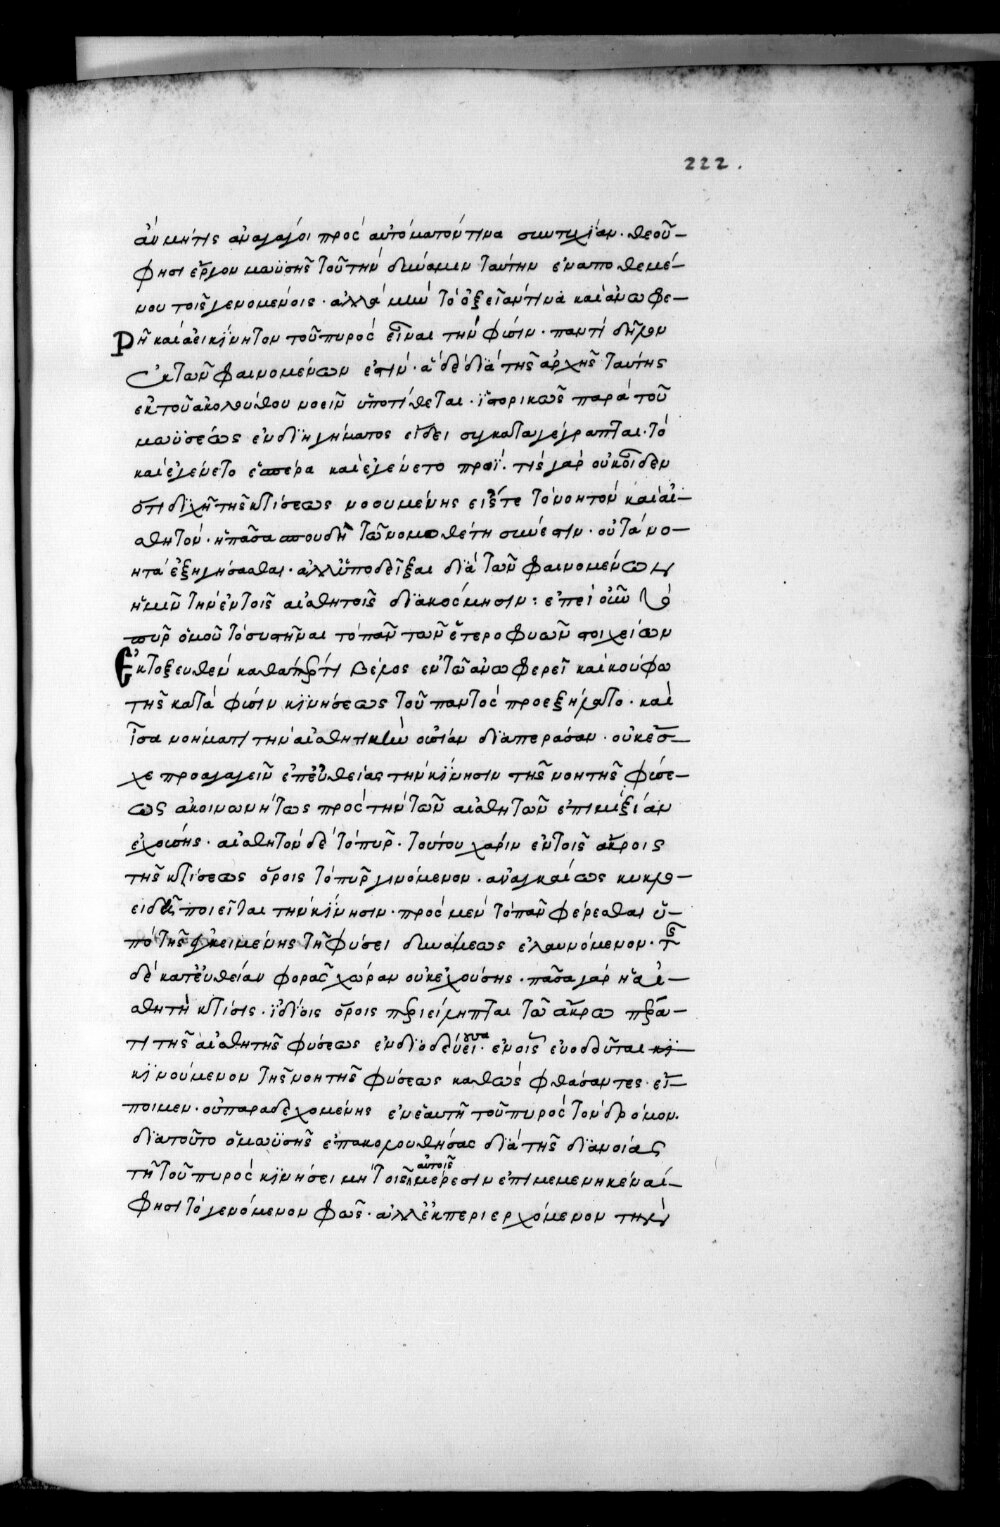 222.
ἂν μήτις ἀναγάγοι πρὸς αὐτόματόν τινα συντυχίαν· θεοῦ
φησι ἔργον μωϋσῆς τοῦ τὴν δύναμιν ταύτην ἐναποθεμέ-
νου τοῖς γενομένοις· ἀλλὰ μὴν τὸ ὀξεῖαν τινὰ καὶ ἀνωφε-
ρῆ καὶ ἀεικίνητον τοῦ πυρὸς εἶναι τὴν φύσιν· παντὶ δῆλον
ἐκ τῶν φαινομένων ἐστίν· ἃ δὲ διὰ τῆς ἀρχῆς ταύτης
ἐκ τοῦ ἀκολούθου νοεῖν ὑποτίθεται· ἱστορικῶς παρὰ τοῦ
μωϋσέως ἐν διηγήματος εἴδει συγκαταγέγραπται· τὸ
καὶ ἐγένετο ἑσπέρα καὶ ἐγένετο πρωΐ· τίς γὰρ οὐκ οἶδεν
ὅτι διχῆ τῆς κτίσεως νοουμένης εἴς τε τὸ νοητὸν καὶ αἰ-
σθητόν· ἡ πᾶσα σπουδὴ τῶ νομοθέτη συνέστιν· οὐ τὰ νο-
ητὰ ἐξηγήσασθαι· ἀλλ' ὑποδεῖξαι διὰ τῶν φαινομένων
ἡμῖν τὴν ἐν τοῖς αἰσθητοῖς διακόσμησιν: ἐπεὶ οὖν τὸ
πῦρ ὁμοῦ τὸ συστῆναι τὸ πᾶν τῶν ἑτεροφυῶν στοιχείων
ἐκτοξευθὲν καθάπερ τι βέλος ἐν τῶ ἀνωφερεῖ καὶ κούφω
τῆς κατὰ φύσιν κινήσεως τοῦ παντὸς προεξήλατο· καὶ
ἴσα νοήματι τὴν αἰσθητικὴν οὐσίαν διαπερᾶσαν· οὐκ ἔσ-
χε προαγαγεῖν ἐπ' εὐθείας τὴν κίνησιν τῆς νοητῆς φύσε-
ως ἀκοινωνήτως πρὸς τὴν τῶν αἰσθητῶν ἐπιμιξίαν
ἐχούσης· αἰσθητὸν δὲ τὸ πῦρ· τούτου χάριν ἐν τοῖς ἄκροις
τῆς κτίσεως ὅροις τὸ πῦρ γινόμενον· ἀναγκαίως κυκλο-
ειδῆ ποιεῖται τὴν κίνησιν· πρὸς μὲν τὸ πᾶν φέρεσθαι ὑ-
πὸ τῆς ἐγκειμένης τῆ φύσει δυνάμεως ἐλαυνόμενον· τῆς
δὲ κατ' εὐθεῖαν φορᾶς χώραν οὐκ ἐχούσης· πᾶσα γὰρ ἡ αἰ-
σθητὴ κτίσις· ἰδίοις ὅροις περιείληπται τῶ ἄκρω πέρα-
τι τῆς αἰσθητῆς φύσεως ἐνδιοδεύει·ουσα ἐν οἷς εὐοδοῦται κι-
κινούμενον τῆς νοητῆς φύσεως καθὼς φθάσαντες εἴ-
ποιμεν· οὐ παραδεχομένης ἐν ἑαυτῆ τοῦ πυρὸς τὸν δρόμον.
διὰ τοῦτο ὁ μωϋσῆς ἐπακολουθήσας διὰ τῆς διανοίας
τῆ τοῦ πυρὸς κινήσει μὴ τοῖς αὐτοῖς μέρεσιν ἐπιμεμενηκέναι
φησὶ τὸ γενόμενον φῶς· ἀλλ' ἐκπεριερχόμενον τὴν